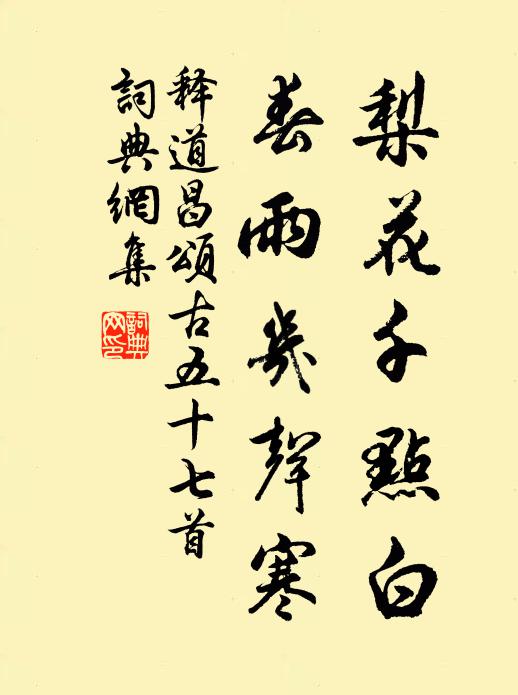 梨花千點白
春雨幾聲寒
释道昌頌古五十七首
詞典網集
詞典網印